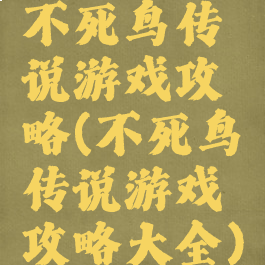 不死鸟传
说游戏攻
略(不死鸟
传说游戏
攻略大全)